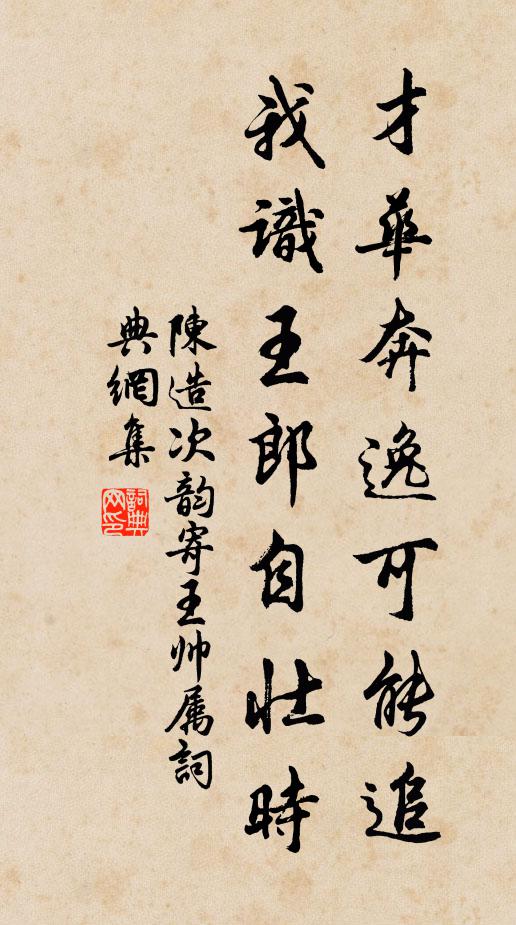 才華奔逸可能追
我識王郎自壯時
陳造次韵寄王帅屬詞
典網集
詞典網印